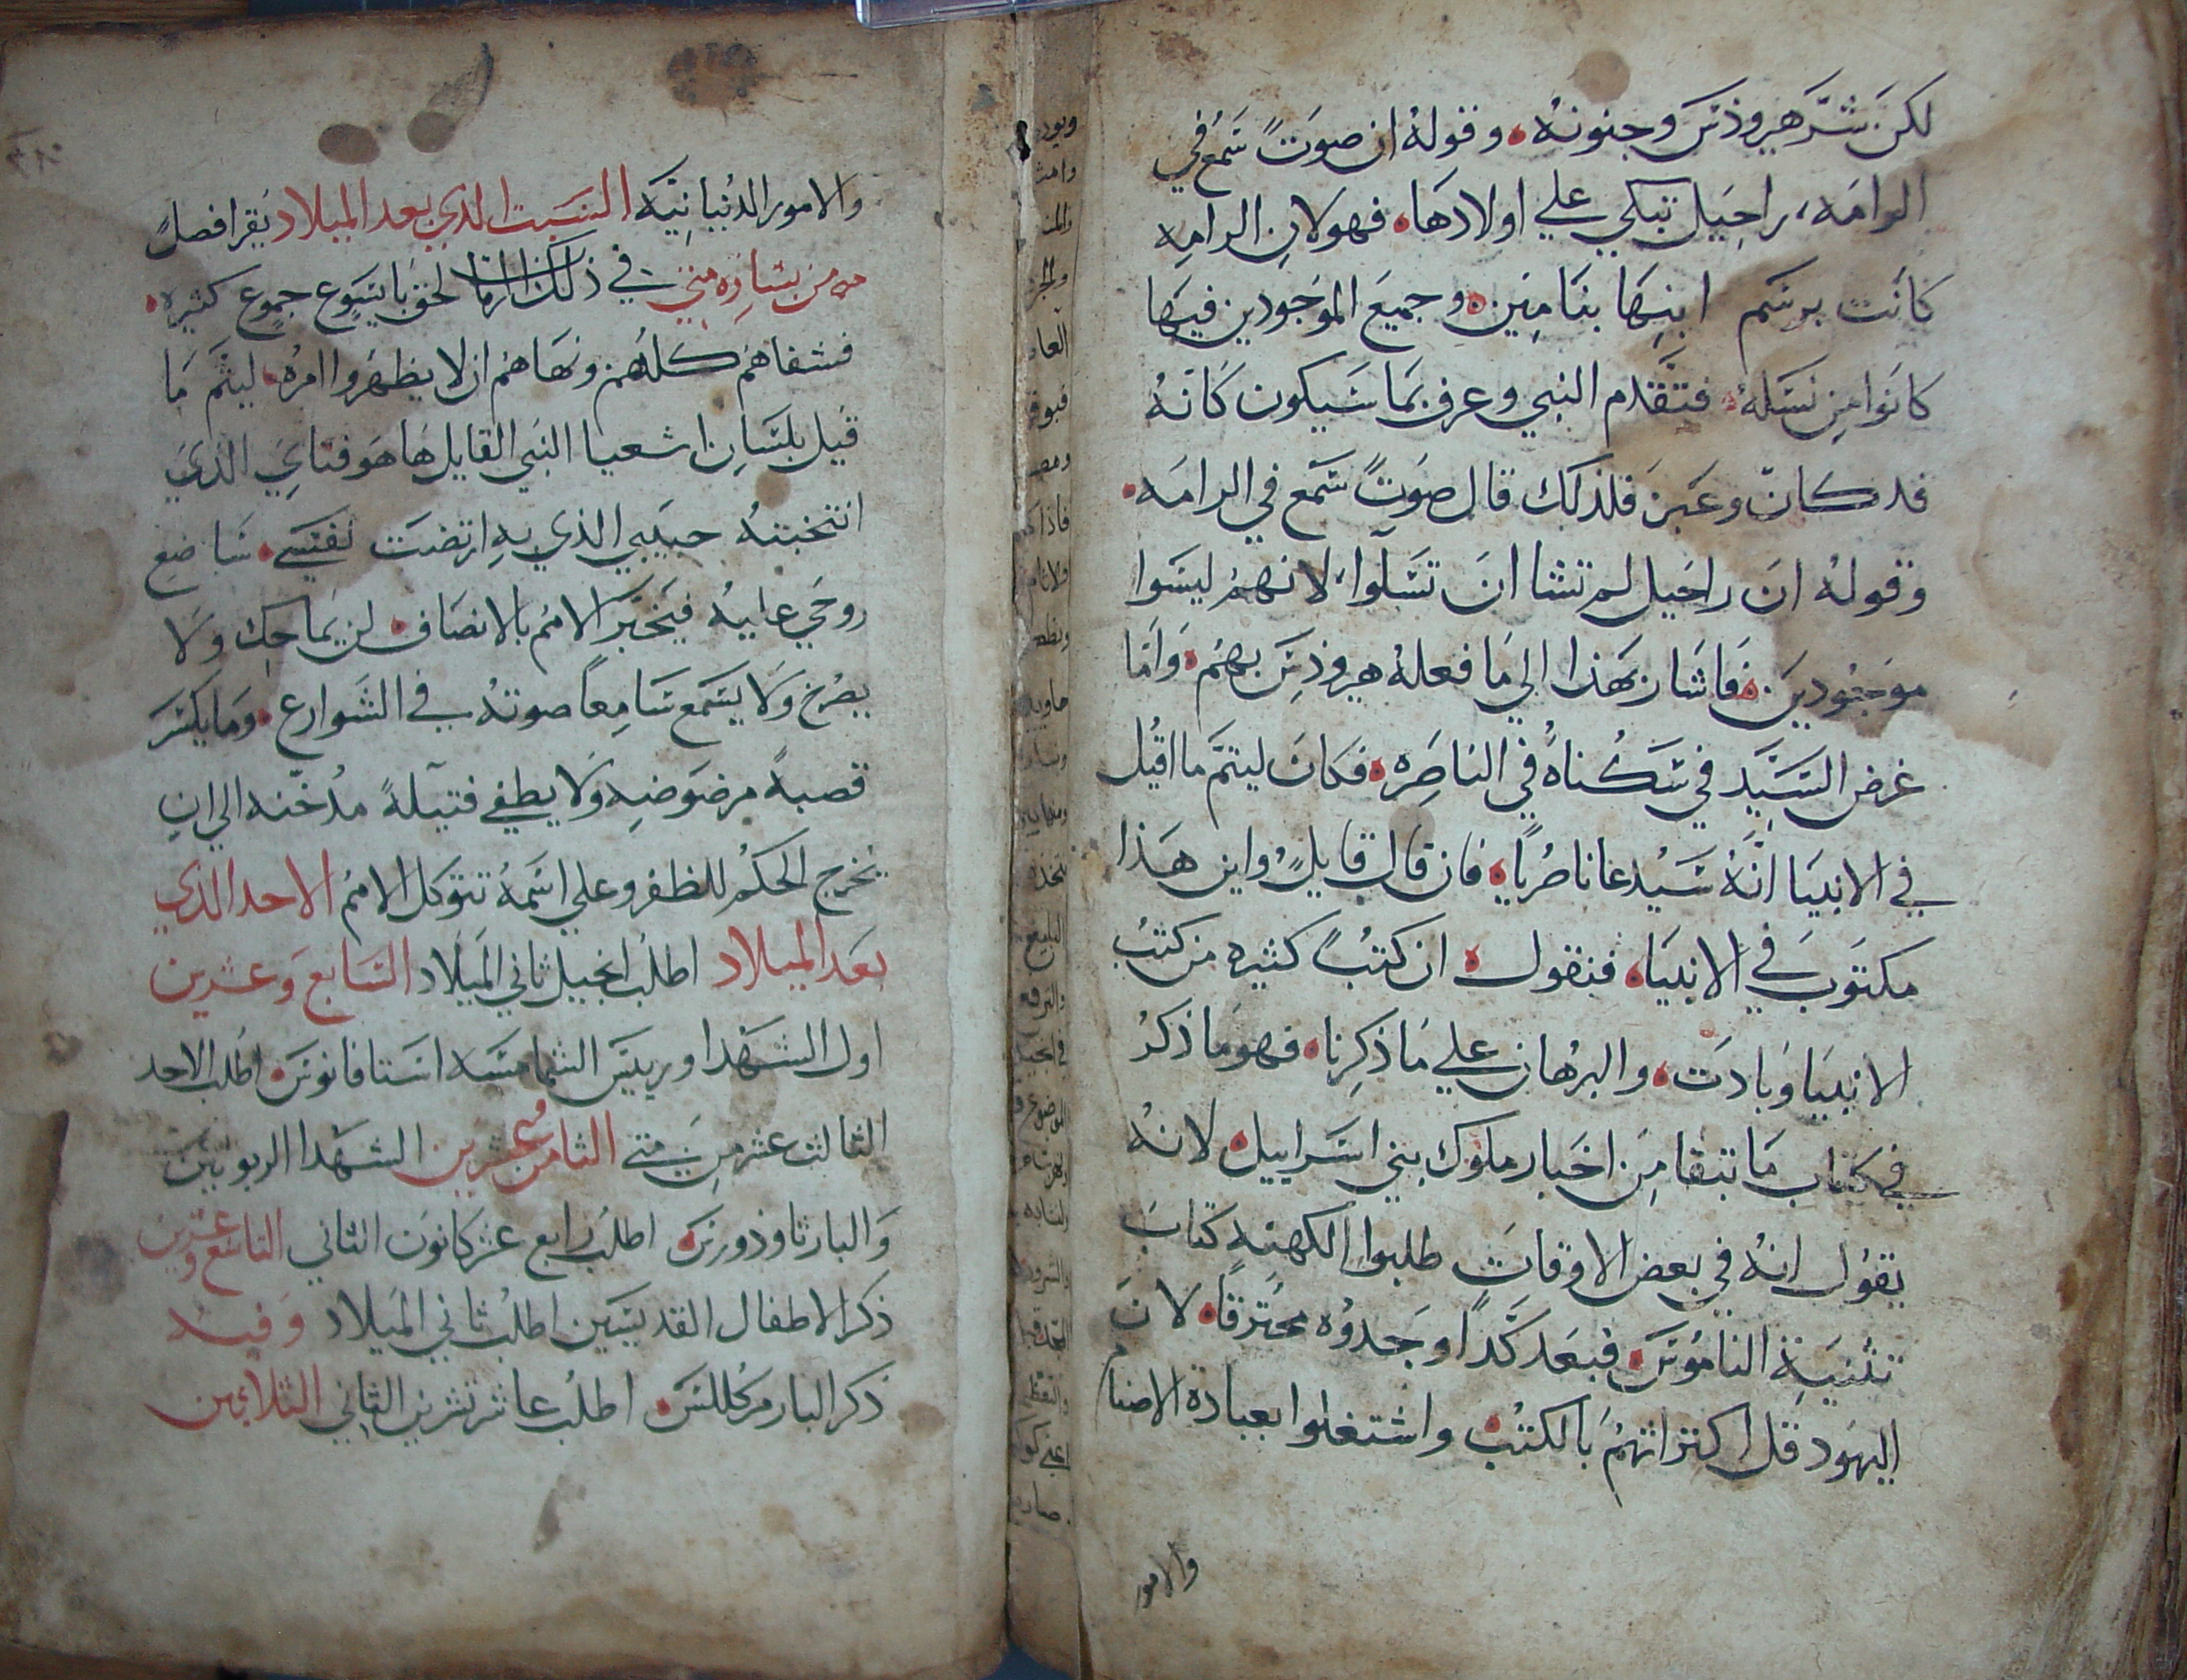 لكن شر هيروذس وجنونه. وقوله ان صوتاً سمع في
الرامه، راحيل تبكي علي اولادها. فهو لان الرامه
كانت برسم ابنها بنيامين. وجميع الموجودين فيها
كانوا من نسله. فتقدم النبي وعرف بما سيكون كانه
قد كان وعبر فلذلك قال صوتً سمع في الرامه.
وقوله ان راحيل لم تشا ان تسلوا، لانهم ليسوا
موجودين. فاشار بهذا الي ما فعله هيروذس بهم. واما
غرض السيد في سكناه في الناصره. فكان ليتم ما اقيل
في الانبيا انه سيدعا ناصرياً. فان قال قايلٌ واين هذا
مكتوب في الانبيا. فنقول. ان كتباً كثيره من كتب
الانبيا وبادت. والبرهان علي ما ذكرنا. فهو ما ذكر
في كتاب ما تبقا من اخبار ملوك بني اسراييل. لانه
يقول انه في بعض الاوقات طلبوا الكهنه كتاب
تثنية الناموس. فبعد كداً وجدوه محترقاً. لان
اليهود قل اكتراثهم بالكتب. واشتغلوا بعبادة الاصنام
والامور
والامور الدنيانيه السبت الذي بعد الميلاد يقرا فصل
من بشارة متي في ذلك الزمان لحق بايسوع جموع كثيره.
فشفاهم كلهم ونهاهم ان لا يظهروا امره. ليتم ما
قيل بلسان اشعيا النبي القايل ها هو فتاي الذي
انتخبته حبيبي الذي به ارتضت نفسي. ساضع
روحي عليه فيخبر الامم بالانصاف. لن يماحك ولا
يصرخ ولا يسمع سامعاً صوته في الشوارع. وما يكسر
قصبةً مرضوضه ولا يطفي فتيلةً مدخنه الي ان
يخرج الحكم للظفر وعلي اسمه تتوكل الامم الاحد الذي
بعد الميلاد اطلب انجيل ثاني الميلاد السابع وعشرين
اول الشهدا وريس الشمامسه استافانوس. اطلب الاحد
الثالث عشر من متي الثامن وعشرين الشهدا الربوتين
والبار ثاوذورس. اطلب رابع عشر كانون الثاني التاسع وعشرين
ذكر الاطفال القديسين اطلب ثاني الميلاد وفيه
ذكر البار مركللس. اطلب عاشر تشرين الثاني الثلاثين